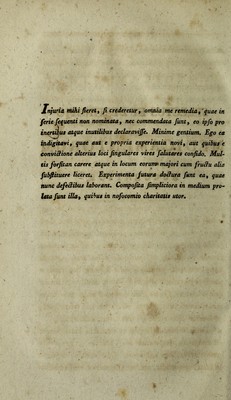 Injuria mihi fieret, si crederetur, omnia me remedia, quae in
serie sequenti non nominata, nec commendata sunt, eo ipso pro
inertibus atque inutilibus declaravisse. Minime gentium. Ego ea
indigitavi, quae aut e propria experientia novi, aut quibus e
convictione alterius loci singulares vires salutares confido. Mul-
tis forsitan carere atque in locum eorum majori cum fructu alia
substituere liceret. Experimenta futura doctura sunt ea, quae
nunc defectibus laborant. Composita simpliciora in medium pro-
lata sunt illa, quibus in nosocomio charitatis utor.